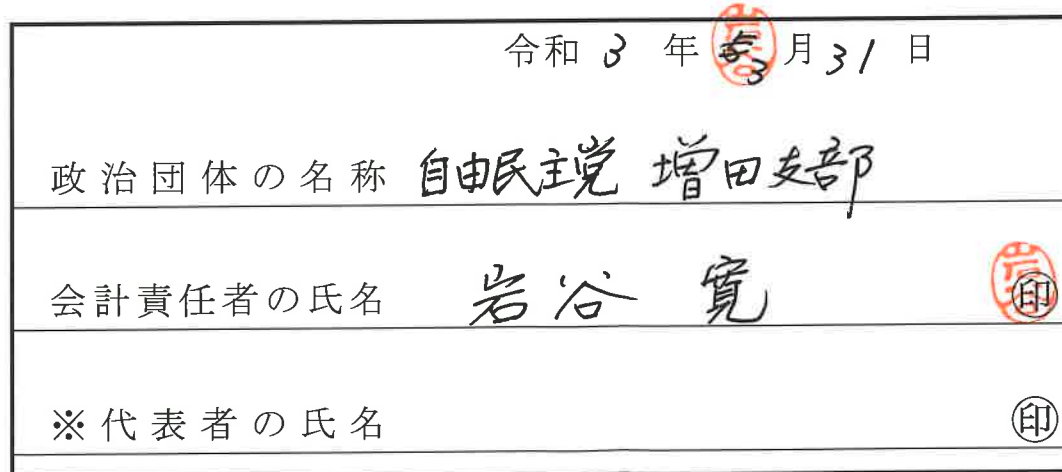 令和 3 年 3 月 31 日
政治団体の名称 自由民主党 増田支部
会計責任者の氏名 岩谷 寛 印
※代表者の氏名 印